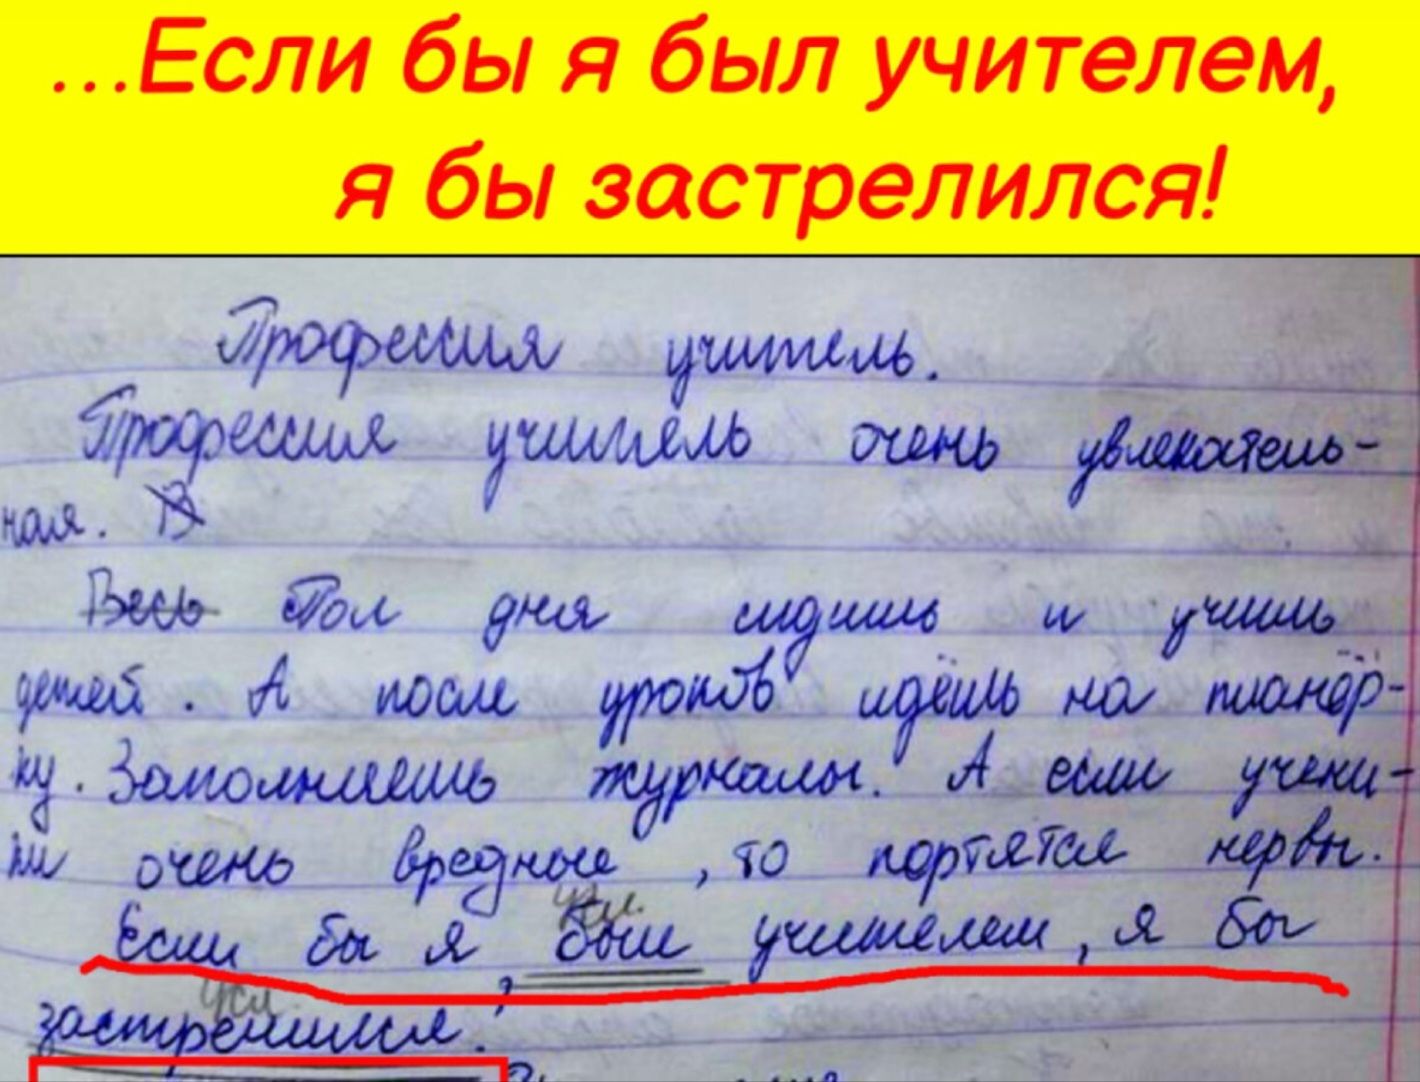 ...Если бы я был учителем,
я бы застрелился!
Профессия учитель.
Профессия учитель очень увлекатель-
ная. В
Весь Пол дня сидишь и учишь
детей. А после уроков идёшь на планёр-
ку. Заполняешь журналы. А если учени-
ки очень вредные, то портятся нервы.
усл.
Если бы я был учителем, я бы
усл.
застрелился.